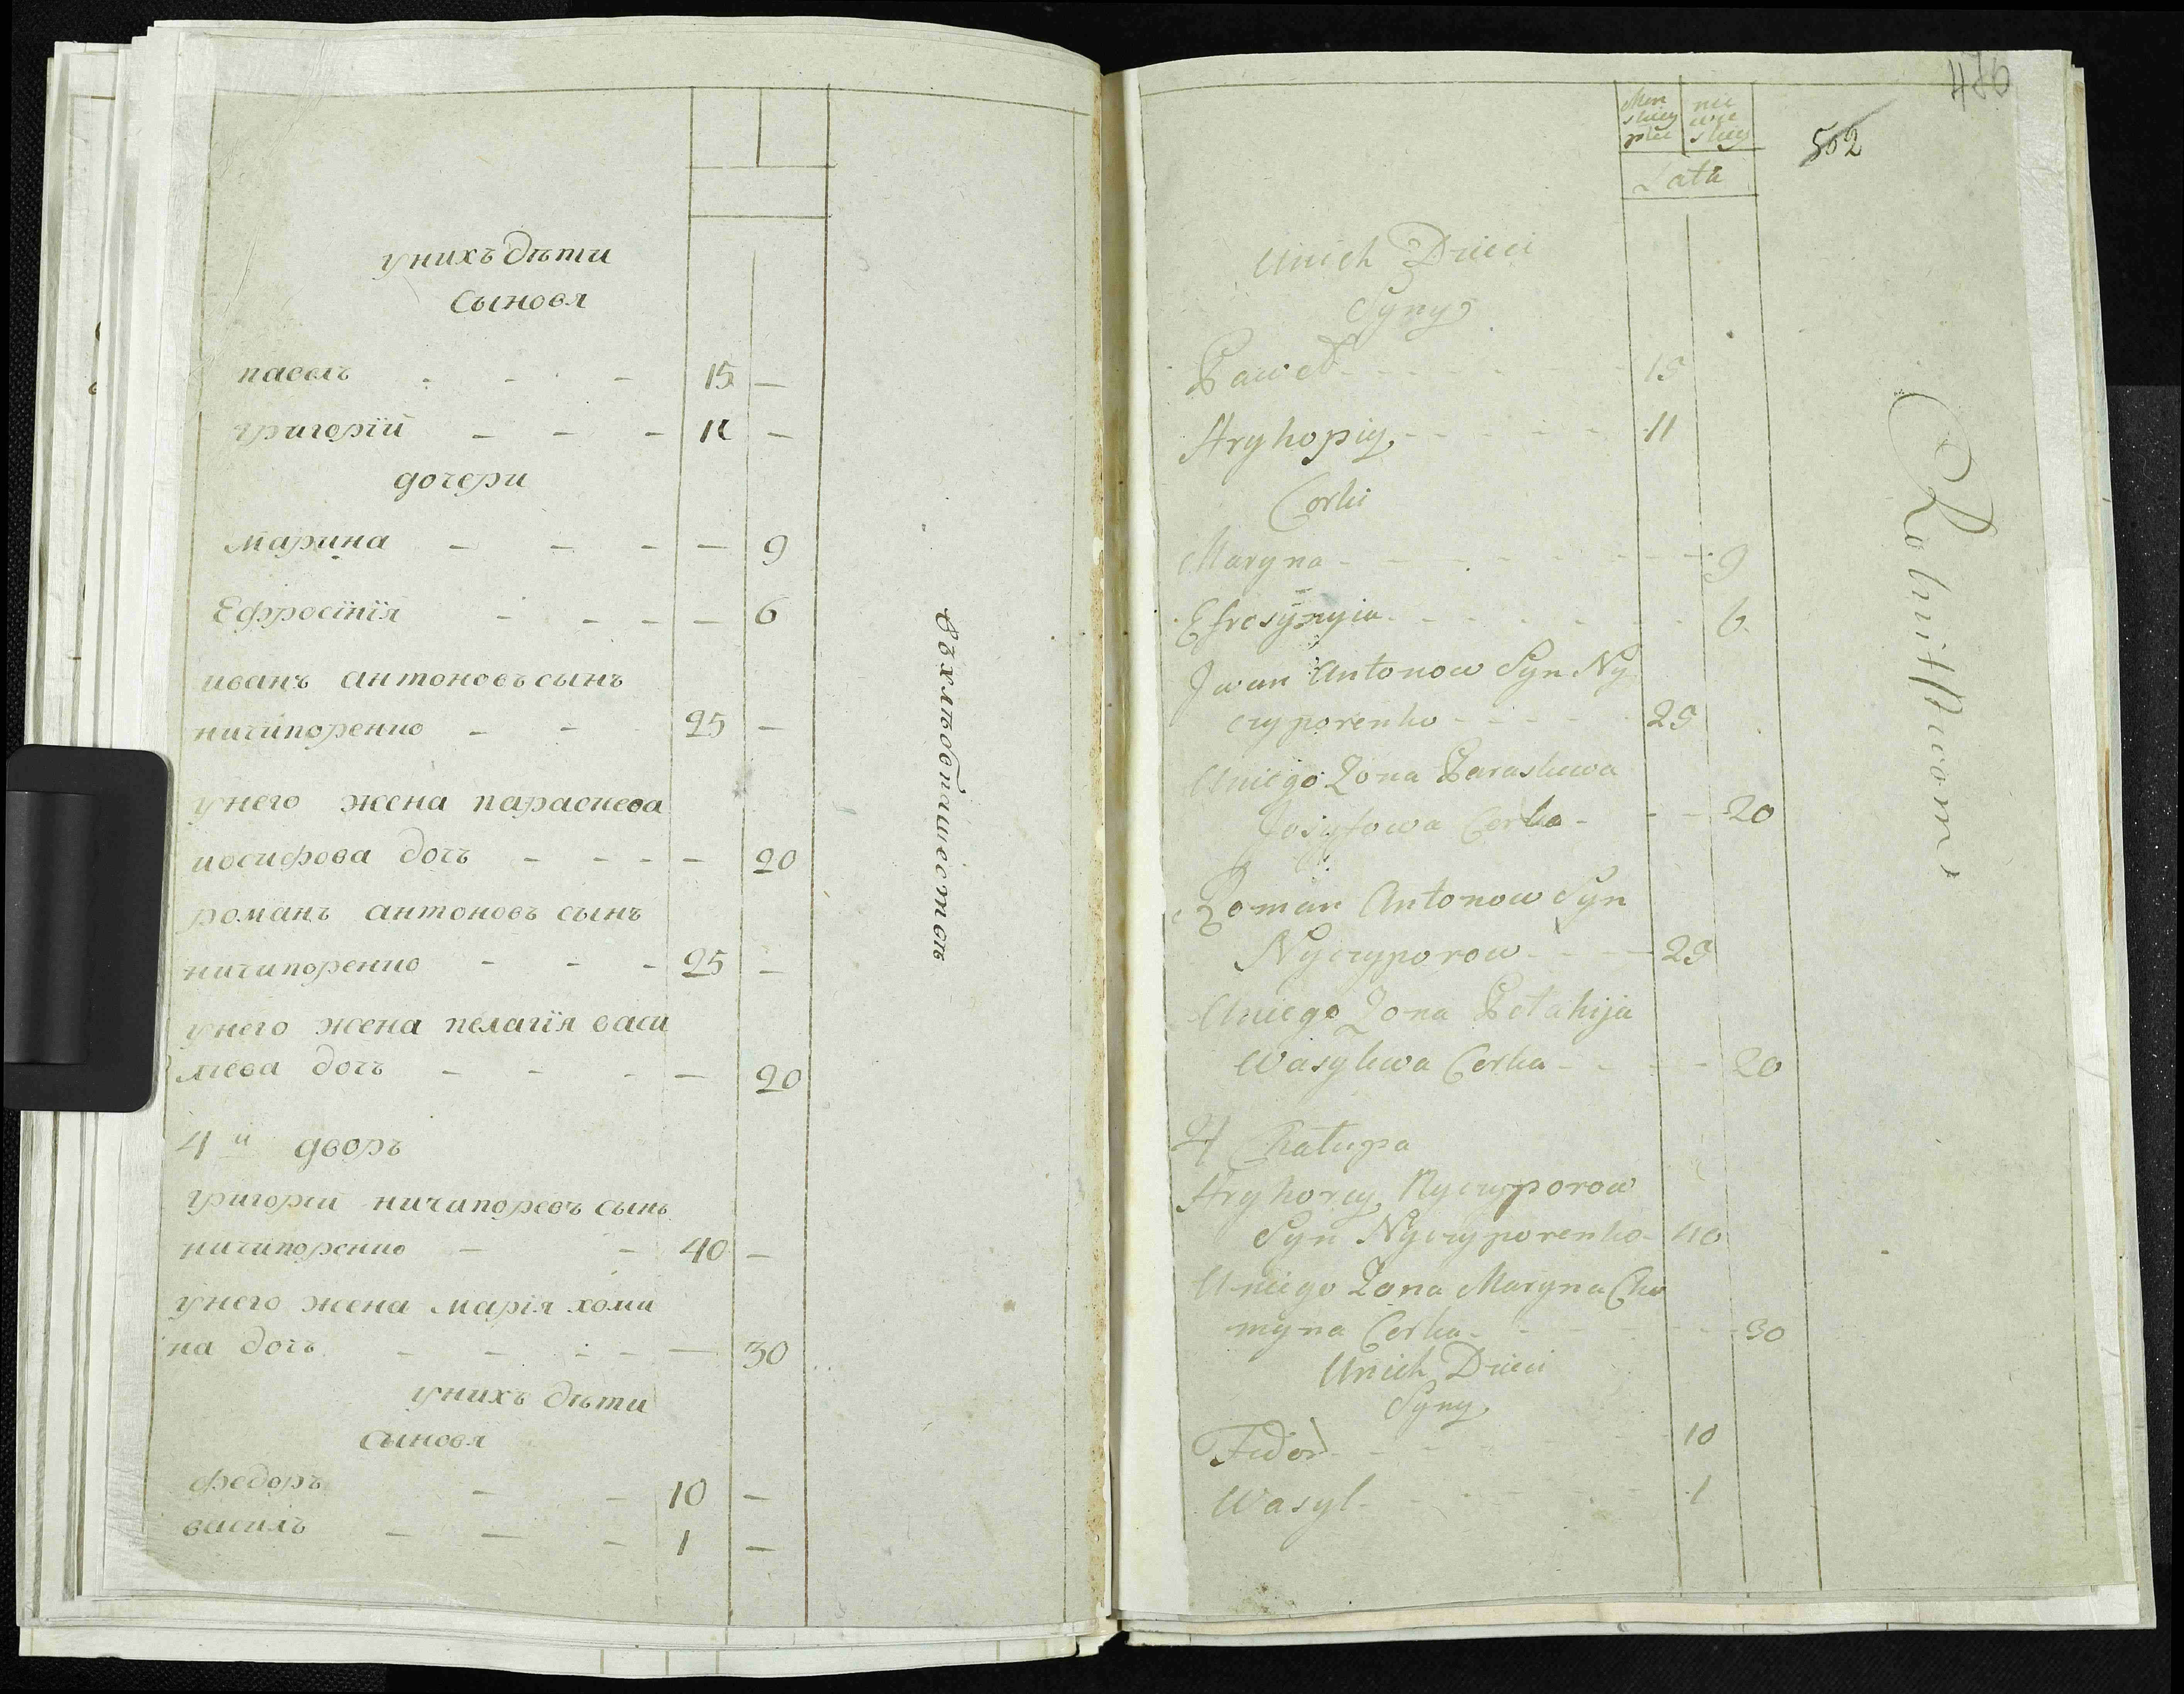 унихъ дѣти
Сыновя
павелъ - - - 15 -
григорїй - - - 11 -
дочери
марина - - - - 9
Ефросїнїя - - - - 6
иванъ антоновъ сынъ
ничипоренко - - 25 -
унего жена параскева
иосифова дочъ - - - - 20
романъ антоновъ сынъ
ничипоренко - - - 25 -
унего жена пелагїя васи
лева дочъ - - - - 20
4й дворъ
григорїй ничипоровъ сынъ
ничипоренко - - 40 -
унего жена марїя хоми
на дочъ - - - - - 30
унихъ дѣти
сыновя
федоръ - - 10 -
василъ - - - 1 -
Вхлѣбопашествѣ
476
502
Men skiey płci
nie wie skiey
Lata
Unich Dzieci
Syny
Paweł - - - - - 15
Hryhoriy - - - - - 11
Corki
Maryna - - - - - - 9
Efrosynyia - - - - - - 6
Jwan Antonow Syn Ny
czyporenko - - - - 25
Uniego Zona Paraskewa
Josyfowa Corka - - - 20
Roman Antonow Syn
Nyczyporow - - - 25
Uniego Zona Pelahija
Wasylewa Corka - - - - 20
4 Chałupa
Hryhorey Nyczyporow
Syn Nyczyporenko - 40
Uniego Zona Maryna Cho
myna Corka - - - - - 30
Unich Dzieci
Syny
Fidor - - - - - 10
Wasyl - - - - - 1